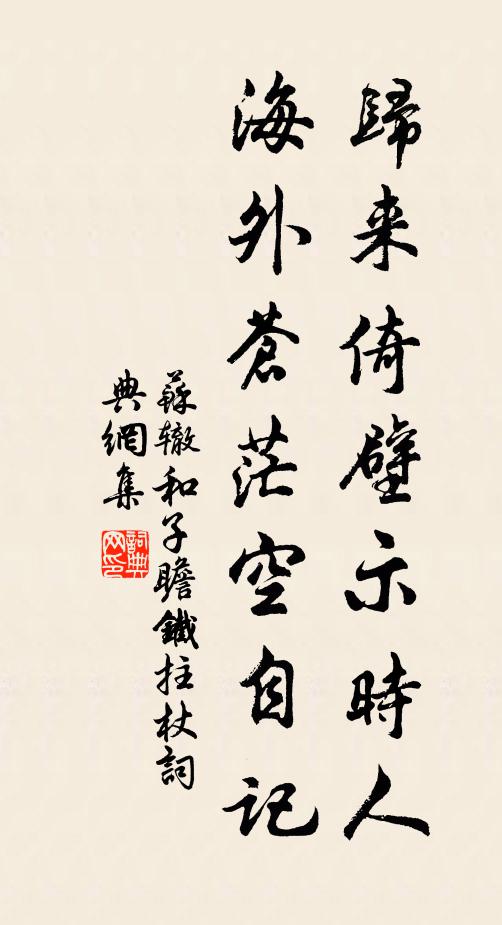 歸来倚壁示時人
海外蒼茫空自记
蘇辙和子瞻鐵拄杖詞
典網集
詞典
网印